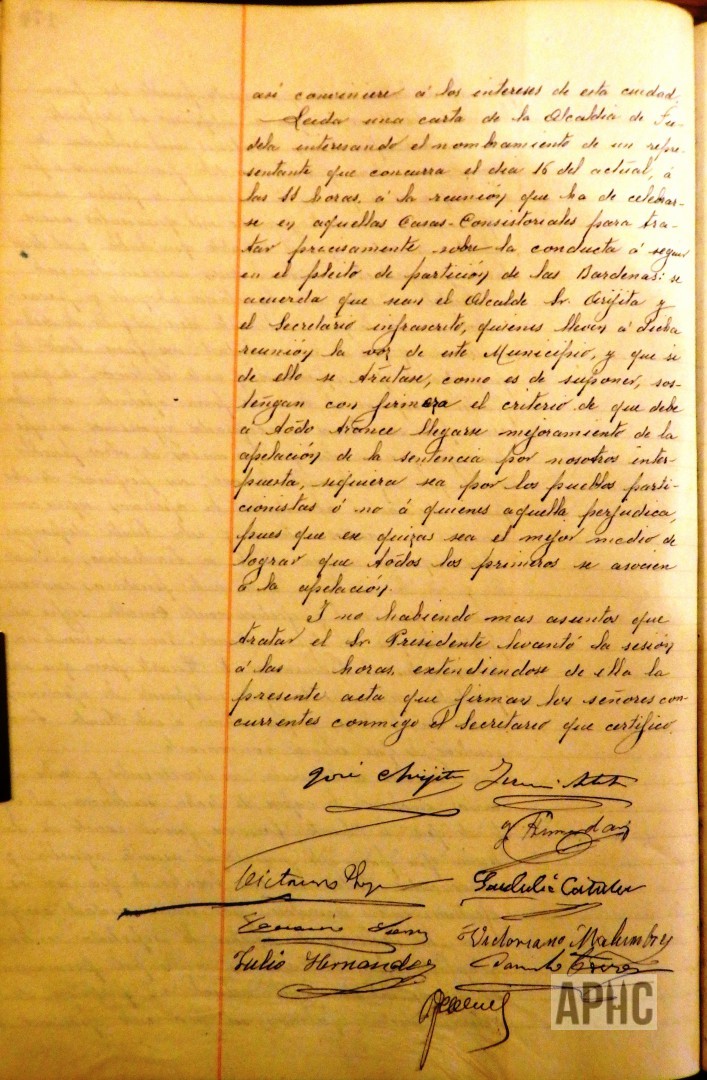 así conviniere á los intereses de esta ciudad.
Leida una carta de la Alcaldia de Tu-
dela interesando el nombramiento de un repre-
sentante que concurra el dia 16 del actual, á
las 11 horas, á la reunión que ha de celebrar-
se en aquellas Casas-Consistoriales para tra-
tar precisamente sobre la conducta á seguir
en el pleito de partición de las Bardenas: se
acuerda que sean el Alcalde Sr. Arijita y
el Secretario infrascrito, quienes lleven á dicha
reunión la voz de este Municipio, y que si
de ello se tratase, como es de suponer, sos-
tengan con firmeza el criterio de que debe
a todo trance llegarse mejoramiento de la
apelación de la sentencia por nosotros inter-
puesta, siquiera sea por los pueblos parti-
cionistas ó no á quienes aquella perjudica,
pues que ese quizas sea el mejor medio de
lograr que todos los primeros se asocien
á la apelación.
Y no habiendo mas asuntos que
tratar el Sr. Presidente levantó la sesión
á las horas, extendiendose de ella la
presente acta que firman los señores con-
currentes conmigo el Secretario que certifico.
José Arijita
y Fernandez
Victoriano Malumbres
Julio Hernandez
APHC